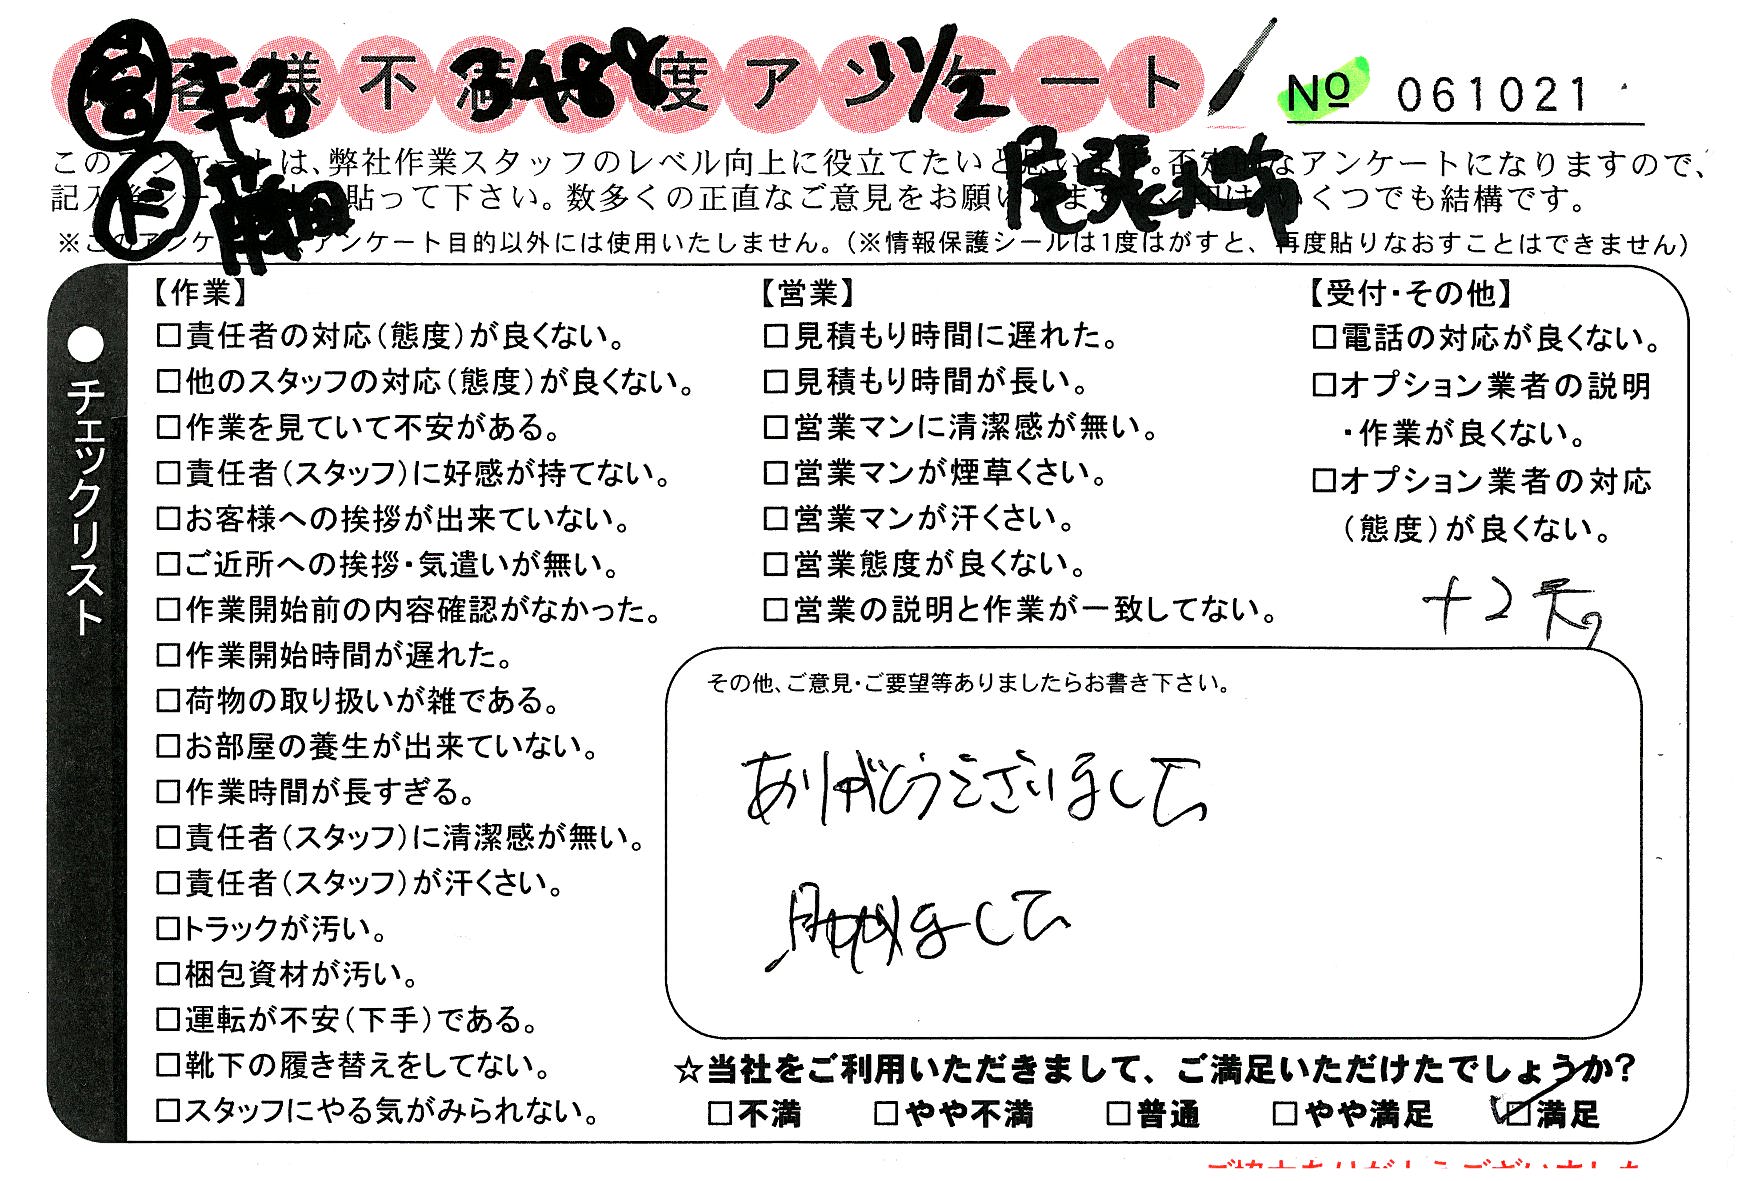 お客様不満足度アンケート
No 061021
営 手名 3488 11/2
ド 藤田 尾張旭市
このアンケートは、弊社作業スタッフのレベル向上に役立てたいと思います。否定的なアンケートになりますので、
記入後シールを貼って下さい。数多くの正直なご意見をお願いします。いくつでも結構です。
※このアンケートは、アンケート目的以外には使用いたしません。（※情報保護シールは1度はがすと、再度貼りなおすことはできません）
●チェックリスト
【作業】
□責任者の対応（態度）が良くない。
□他のスタッフの対応（態度）が良くない。
□作業を見ていて不安がある。
□責任者（スタッフ）に好感が持てない。
□お客様への挨拶が出来ていない。
□ご近所への挨拶・気遣いが無い。
□作業開始前の内容確認がなかった。
□作業開始時間が遅れた。
□荷物の取り扱いが雑である。
□お部屋の養生が出来ていない。
□作業時間が長すぎる。
□責任者（スタッフ）に清潔感が無い。
□責任者（スタッフ）が汗くさい。
□トラックが汚い。
□梱包資材が汚い。
□運転が不安（下手）である。
□靴下の履き替えをしてない。
□スタッフにやる気がみられない。
【営業】
□見積もり時間に遅れた。
□見積もり時間が長い。
□営業マンに清潔感が無い。
□営業マンが煙草くさい。
□営業マンが汗くさい。
□営業態度が良くない。
□営業の説明と作業が一致してない。
【受付・その他】
□電話の対応が良くない。
□オプション業者の説明
・作業が良くない。
□オプション業者の対応
（態度）が良くない。
+2点
その他、ご意見・ご要望等ありましたらお書き下さい。
ありがとうございました
助かりました
☆当社をご利用いただきまして、ご満足いただけたでしょうか?
□不満 □やや不満 □普通 □やや満足 ☑満足
ご協力ありがとうございました